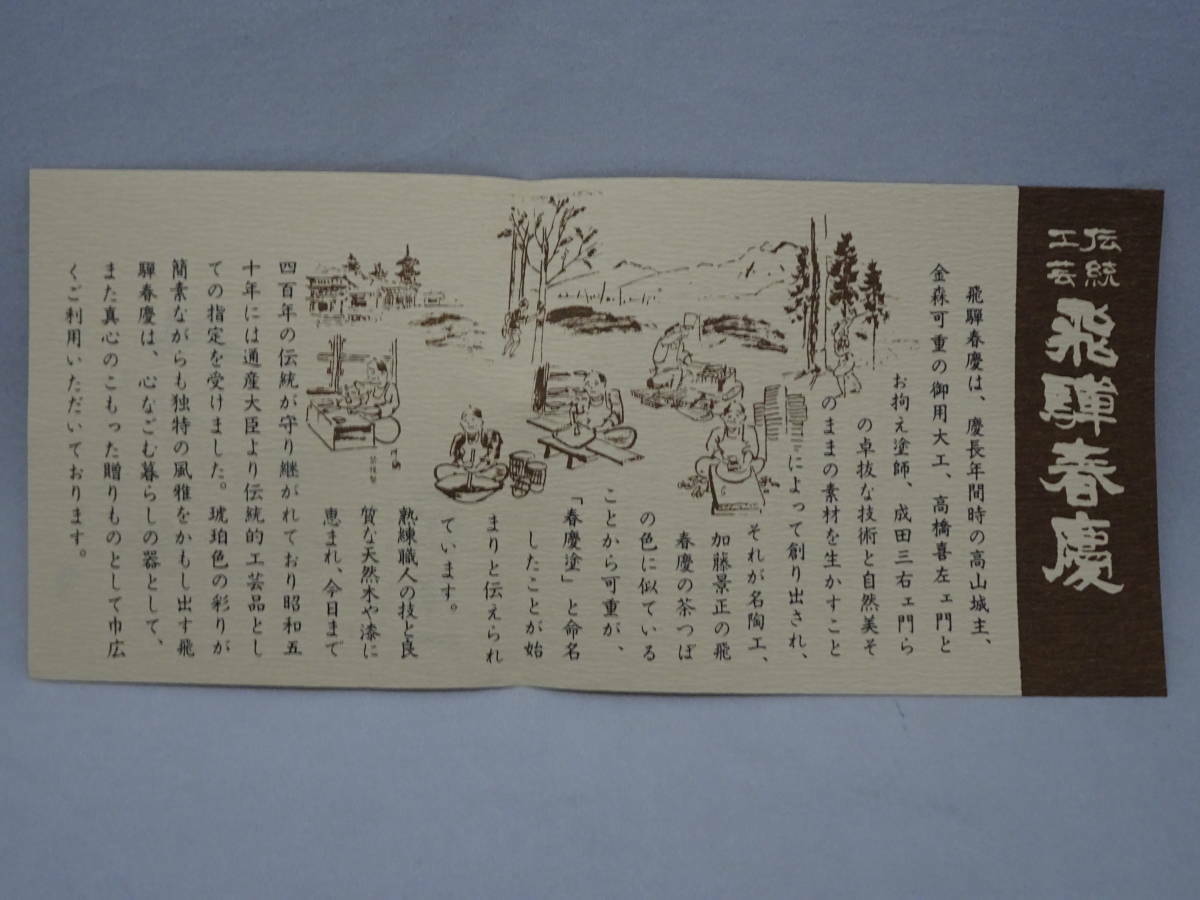 伝統
工芸
飛騨春慶
飛騨春慶は、慶長年間時の高山城主、
金森可重の御用大工、高橋喜左ェ門と
お拘え塗師、成田三右ェ門ら
の卓抜な技術と自然美そ
のままの素材を生かすこと
によって創り出され、
それが名陶工、
加藤景正の飛
春慶の茶つぼ
の色に似ている
ことから可重が、
「春慶塗」と命名
したことが始
まりと伝えられ
ています。
熟練職人の技と良
質な天然木や漆に
恵まれ、今日まで
四百年の伝統が守り継がれており昭和五
十年には通産大臣より伝統的工芸品とし
ての指定を受けました。琥珀色の彩りが
簡素ながらも独特の風雅をかもし出す飛
騨春慶は、心なごむ暮らしの器として、
また真心のこもった贈りものとして巾広
くご利用いただいております。